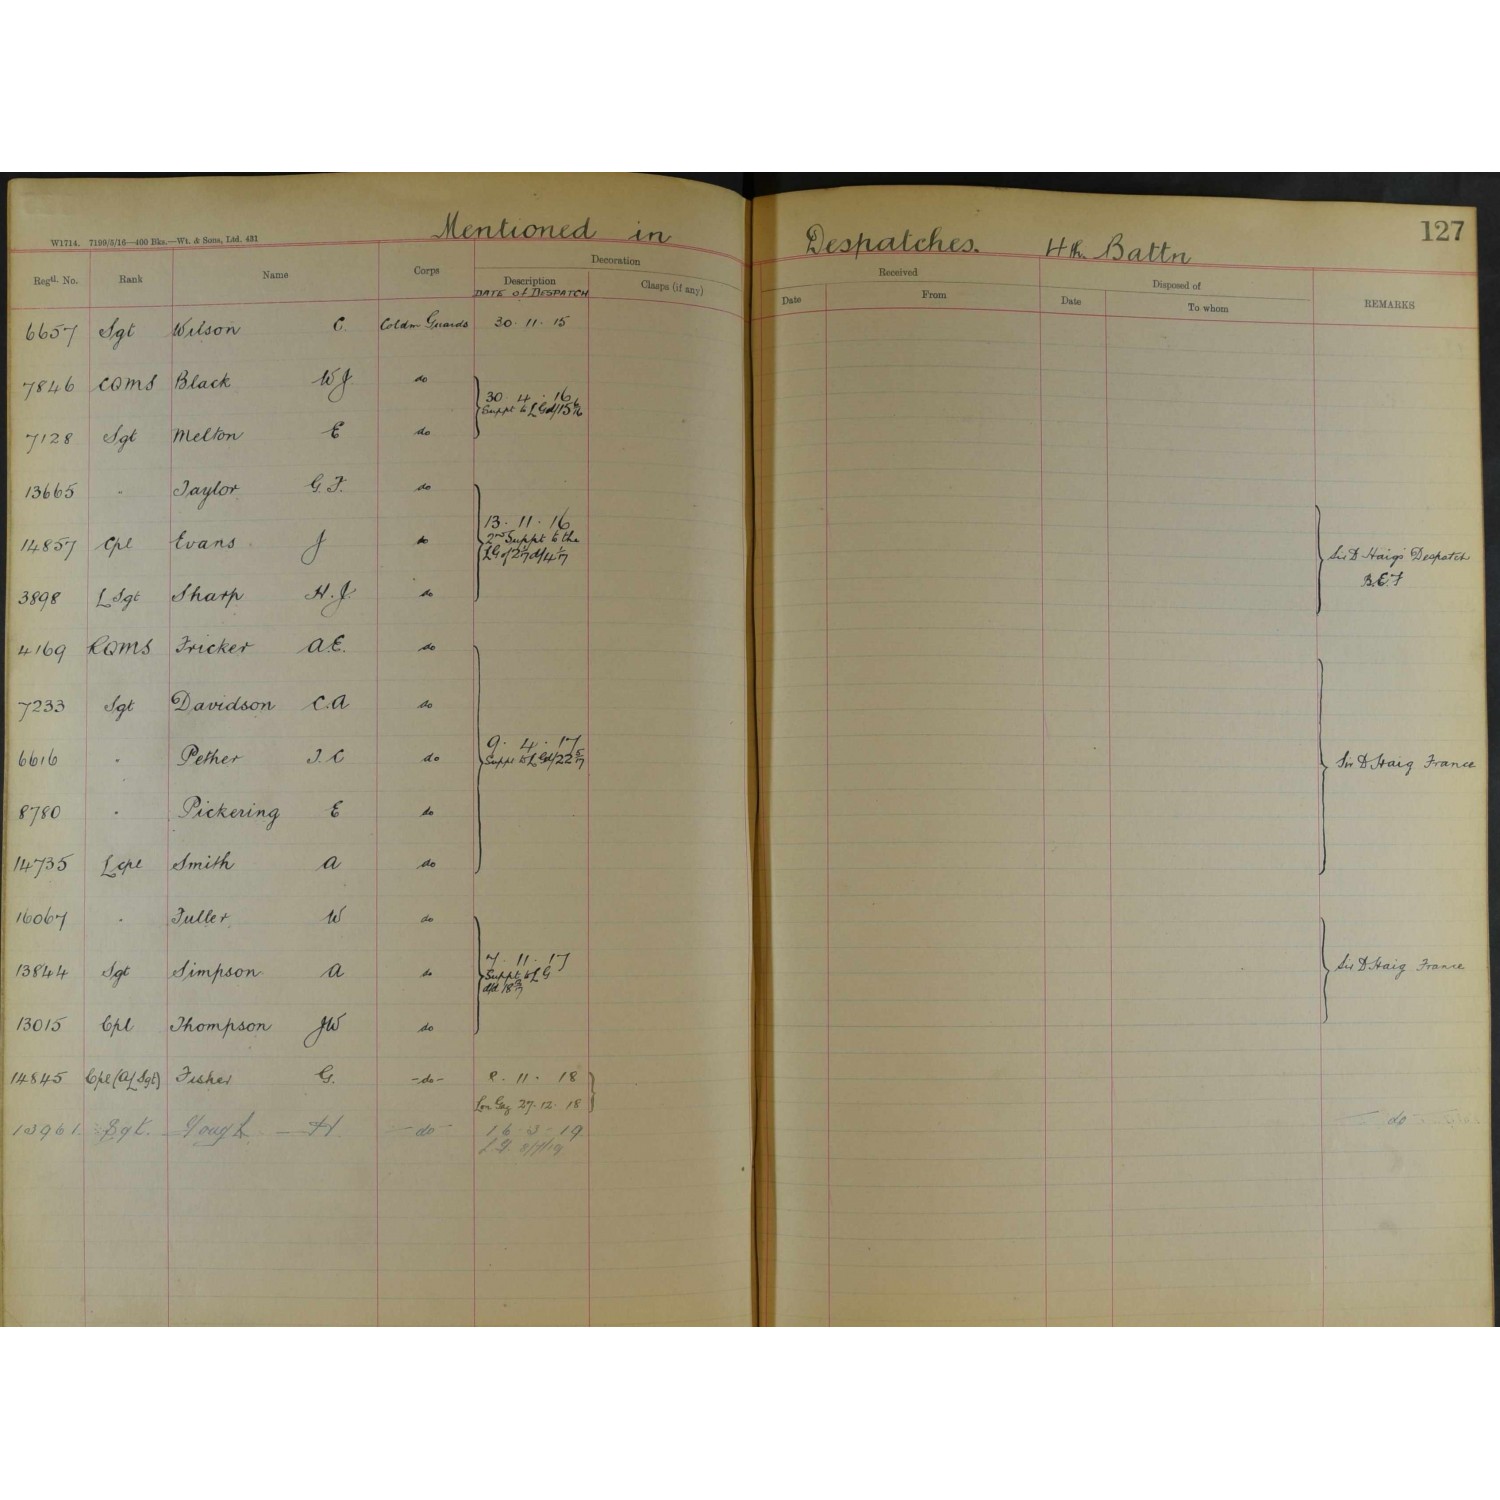 Mentioned in Despatches. 4th Battn
127
W1714. 7199/5/16—400 Bks.—Wt. & Sons, Ltd. 431
Regtl. No. Rank Name Corps Decoration Received Disposed of REMARKS
Description Clasps (if any) Date From Date To whom
DATE of DESPATCH
6657 Sgt Wilson C. Coldm Guards 30. 11. 15
7846 CQMS Black W J. do
30. 4. 16
Suppt to L G d/15 6/16
7128 Sgt Melton E do
13665 " Taylor G. F. do
13. 11. 16
14857 Cpl Evans J do 2nd Suppt to the
LG of 2/1/17 d/4 1/17
Sir D Haigs Despatch
B.E.F
3898 L Sgt Sharp H. J. do
4169 RQMS Fricker A.E. do
7233 Sgt Davidson C.A do
9. 4. 17
6616 " Pether J. C do Suppt to L G d/22 5/17 Sir D Haig France
8780 " Pickering E do
14735 L cpl Smith A do
16067 " Fuller W do
7. 11. 17
13844 Sgt Simpson A do Suppt to L G Sir D Haig France
13015 Cpl Thompson JW do
14845 Cpl (A/L Sgt) Fisher G. -do- 8. 11. 18
Lon Gaz 27. 12. 18
Sgt. Gough H -do- 16. 3. 19 do